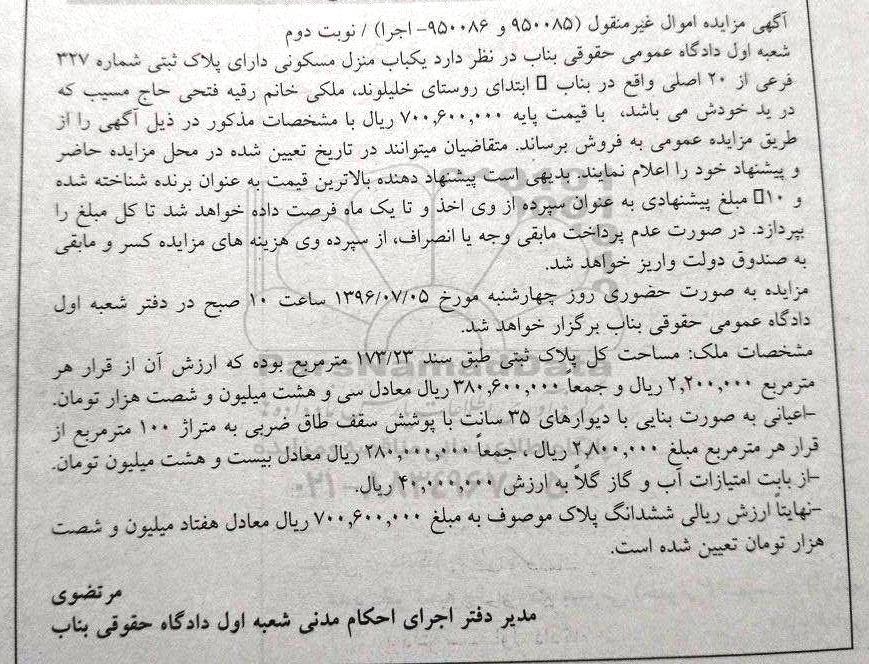 آگهی مزایده اموال غیرمنقول (۹۵۰۰۸۵ و ۹۵۰۰۸۶- اجرا) / نوبت دوم
شعبه اول دادگاه عمومی حقوقی بناب در نظر دارد یکباب منزل مسکونی دارای پلاک ثبتی شماره ۳۲۷
فرعی از ۲۰ اصلی واقع در بناب ▯ ابتدای روستای خلیلوند، ملکی خانم رقیه فتحی حاج مسیب که
در ید خودش می باشد، با قیمت پایه ۷۰۰,۶۰۰,۰۰۰ ریال با مشخصات مذکور در ذیل آگهی را از
طریق مزایده عمومی به فروش برساند. متقاضیان میتوانند در تاریخ تعیین شده در محل مزایده حاضر
و پیشنهاد خود را اعلام نمایند. بدیهی است پیشنهاد دهنده بالاترین قیمت به عنوان برنده شناخته شده
و ۱۰▯ مبلغ پیشنهادی به عنوان سپرده از وی اخذ و تا یک ماه فرصت داده خواهد شد تا کل مبلغ را
بپردازد. در صورت عدم پرداخت مابقی وجه یا انصراف، از سپرده وی هزینه های مزایده کسر و مابقی
به صندوق دولت واریز خواهد شد.
مزایده به صورت حضوری روز چهارشنبه مورخ ۱۳۹۶/۰۷/۰۵ ساعت ۱۰ صبح در دفتر شعبه اول
دادگاه عمومی حقوقی بناب برگزار خواهد شد.
مشخصات ملک: مساحت کل پلاک ثبتی طبق سند ۱۷۳/۲۳ مترمربع بوده که ارزش آن از قرار هر
مترمربع ۲,۲۰۰,۰۰۰ ریال و جمعا ۳۸۰,۶۰۰,۰۰۰ ریال معادل سی و هشت میلیون و شصت هزار تومان.
-اعیانی به صورت بنایی با دیوارهای ۳۵ سانت با پوشش سقف طاق ضربی به متراژ ۱۰۰ مترمربع از
قرار هر مترمربع مبلغ ۲,۸۰۰,۰۰۰ ریال ، جمعاً ۲۸۰,۰۰۰,۰۰۰ ریال معادل بیست و هشت میلیون تومان.
-از بابت امتیازات آب و گاز گلاً به ارزش ۴۰,۰۰۰,۰۰۰ ریال.
-نهایتاً ارزش ریالی ششدانگ پلاک موصوف به مبلغ ۷۰۰,۶۰۰,۰۰۰ ریال معادل هفتاد میلیون و شصت
هزار تومان تعیین شده است.
مرتضوی
مدیر دفتر اجرای احکام مدنی شعبه اول دادگاه حقوقی بناب
ParsNamadData